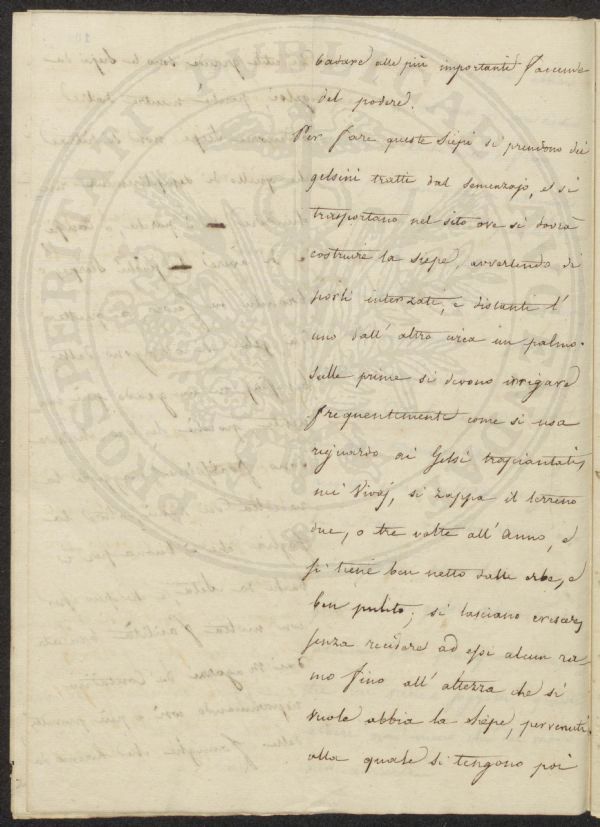 badare alle più importanti faccende
del podere.
Per fare queste Siepi si prendono dei
gelsini tratti dal Semenzajo, e si
trasportano nel sito ove si dovrà
costruire la siepe, avvertendo di
porli interzati, e distanti l'
uno dall' altro circa un palmo.
Sulle prime si devono irrigare
frequentemente come si usa
riguardo ai Gelsi trapiantati
nei Vivaj, si zappa il terreno
due, o tre volte all' Anno, e
si tiene ben netto dalle erbe, e
ben pulito; si lasciano crescere
senza recidere ad essi alcun ra-
mo fino all' altezza che si
vuole abbia la Siepe, pervenuti
alla quale si tengono poi